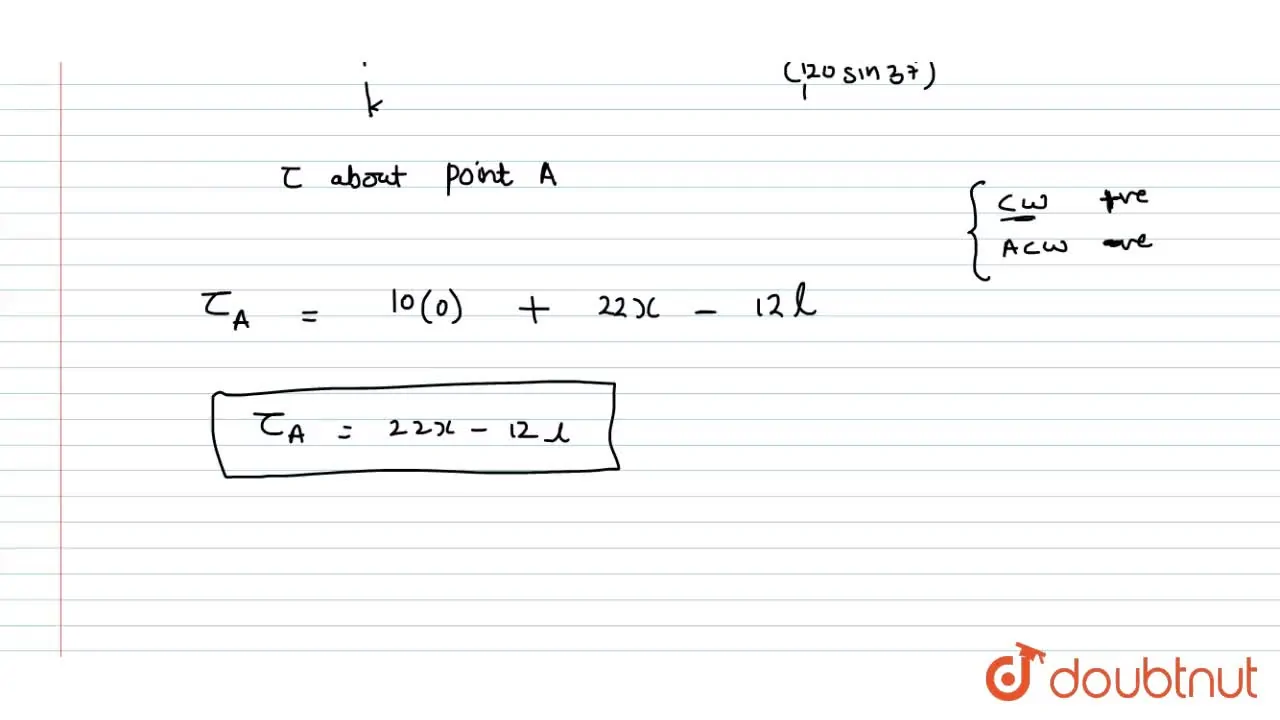 (120 sin 37)
k
τ about point A
CW +ve
ACW -ve
τ_A = 10(0) + 22x - 12l
τ_A = 22x - 12l
doubtnut